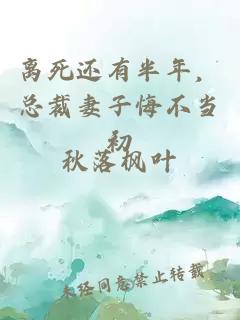 离死还有半年，
总裁妻子悔不当
初
秋落枫叶
未经同意禁止转载